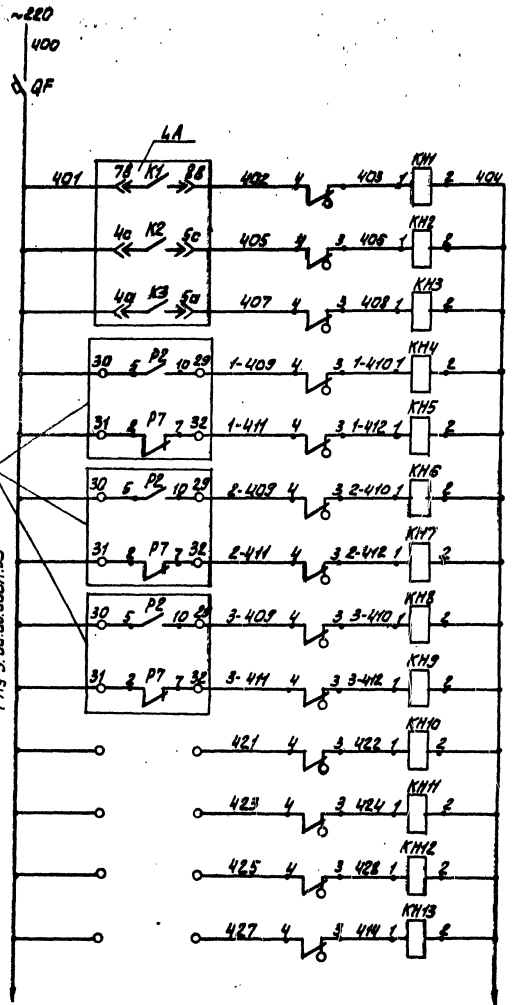 ~220
400
QF
4A
КН1
401 7В К1 8В 402 4 403 1 2 404
КН2
4с К2 5с 405 4 3 406 1 2
КН3
4а К3 5а 407 4 3 408 1 2
КН4
30 5 Р2 10 29 1-409 4 3 1-410 1 2
КН5
31 2 Р7 7 32 1-411 4 3 1-412 1 2
КН6
30 5 Р2 10 29 2-409 4 3 2-410 1 2
КН7
31 2 Р7 7 32 2-411 4 3 2-412 1 2
КН8
30 5 Р2 10 29 3-409 4 3 3-410 1 2
КН9
31 2 Р7 7 32 3-411 4 3 3-412 1 2
КН10
421 4 3 422 1 2
КН11
423 4 3 424 1 2
КН12
425 4 3 426 1 2
КН13
427 4 3 414 1 2